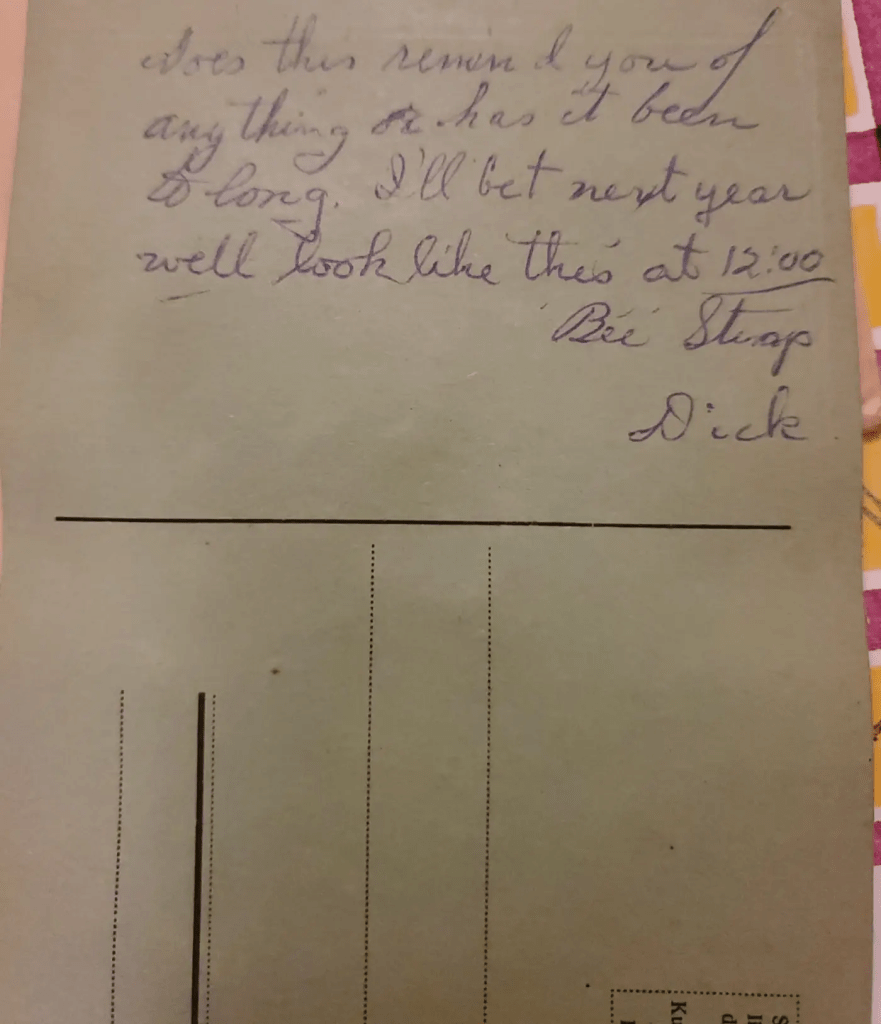 Does this remind you of
anything or has it been
to long. I'll bet next year
well look like this at 12:00
Dick
Ku